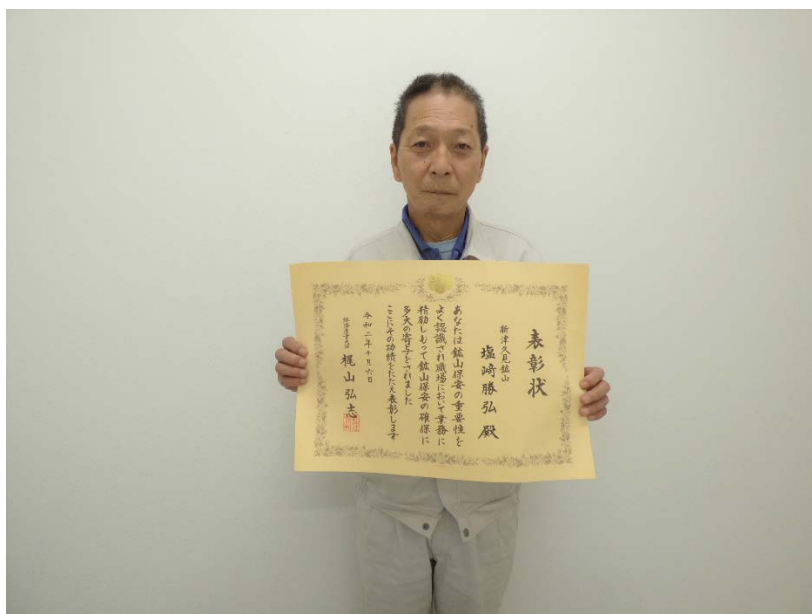 表彰状
新津久見鉱山
塩﨑勝弘殿
あなたは鉱山保安の重要性を
よく認識され職場において業務に
精励しもって鉱山保安の確保に
多大の寄与をされました
ここにその功績をたたえ表彰します
令和二年十月六日
経済産業大臣
梶山弘志